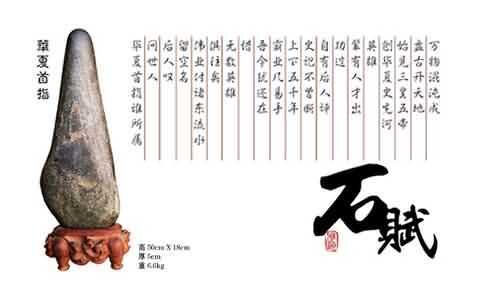 万物混沌成
盘古开天地
始见三皇五帝
创华夏史先河
英雄
辈有人才出
功过
自有后人评
史记不曾断
上下五千年
霸业几易手
吾今犹还在
惜
无数英雄
俱往矣
伟业付诸东流水
留空名
后人叹
问世人
华夏首指谁所属
華夏首指
石赋
高 50cm X 18cm
厚 5cm
重 6.6kg